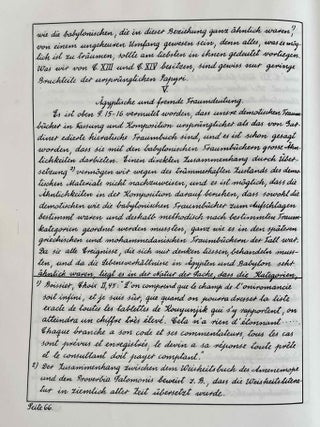 wie die babylonischen, die in dieser Beziehung ganz ähnlich waren,¹⁾
von einem ungeheuren Umfang gewesen sein, denn alles, was es mög-
lich ist zu träumen, sollte am liebsten in ihnen gedeutet vorliegen.
Was wir von C. XIII und C. XIV besitzen, sind gewiss nur geringe
Bruchteile der ursprünglichen Papyri.
V.
Ägyptische und fremde Traumdeutung.
Es ist oben S. 15-16 vermutet worden, dass unsere demotischen Traum-
bücher in Fassung und Komposition ursprünglicher als das von Gar-
diner edierte hieratische Traumbuch sind, und es ist schon gesagt
worden, dass sie mit den babylonischen Traumbüchern grosse Ähn-
lichkeiten darbieten. Einen direkten Zusammenhang durch Über-
setzung²⁾ vermögen wir wegen des trümmerhaften Zustands des demo-
tischen Materials nicht nachzuweisen, und es ist möglich, dass die
Ähnlichkeiten in der Komposition darauf beruhen, dass sowohl die
demotischen wie die babylonischen Traumbücher zum Aufschlagen
bestimmt waren und deshalb methodisch nach bestimmten Traum-
kategorien geordnet werden mussten, ganz wie es in den späteren
griechischen und mohammedanischen Traumbüchern der Fall war.
Da sie alle Ereignisse, die sich nur denken liessen, behandeln muss-
ten, und da die Lebensverhältnisse in Ägypten und Babylon sehr
ähnlich waren, liegt es in der Natur der Sache, dass die Kategorien,
¹⁾ Boissier, Choix II, 45: "L'on comprend que le champ de l'oniromancie
soit infini, et je suis sûr, que quand on pourra dresser la liste
exacte de toutes les tablettes de Kouyunjik qui s'y rapportent, on
atteindra un chiffre très élevé. Cela n'a rien d'étonnant...
Chaque branche a son code et ses commentateurs, tous les cas
sont prévus et enregistrés, le devin a sa réponse toute prête
et le consultant doit payer comptant."
²⁾ Der Zusammenhang zwischen dem Weisheitsbuch des Amenemope
und den Proverbia Salomonis beweist z. B., dass die Weisheitslitera-
tur in ziemlich alter Zeit übersetzt wurde.
Seite 66.